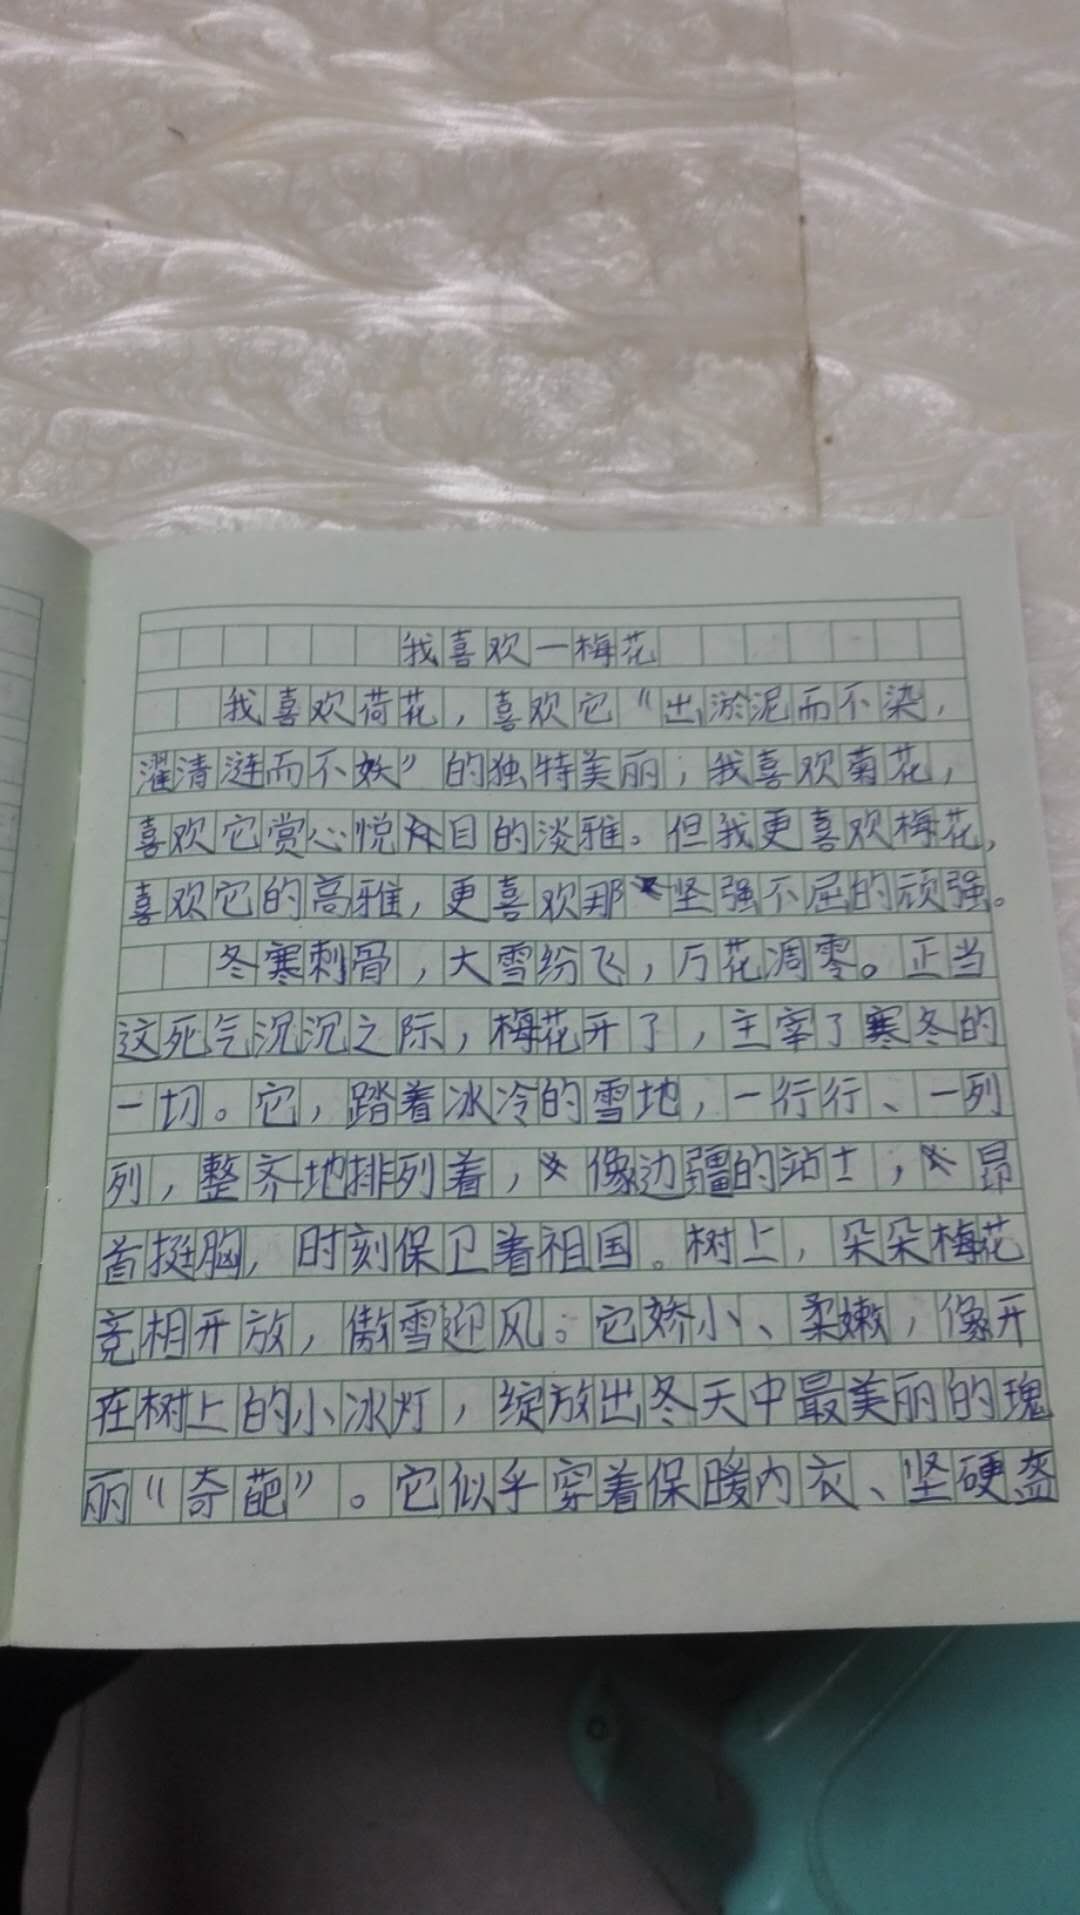 我喜欢一梅花
我喜欢荷花，喜欢它“出淤泥而不染，
濯清涟而不妖”的独特美丽；我喜欢菊花，
喜欢它赏心悦目的淡雅。但我更喜欢梅花，
喜欢它的高雅，更喜欢那坚强不屈的顽强。
冬寒刺骨，大雪纷飞，万花凋零。正当
这死气沉沉之际，梅花开了，主宰了寒冬的
一切。它，踏着冰冷的雪地，一行行、一列
列，整齐地排列着，像边疆的站士，昂
首挺胸，时刻保卫着祖国。树上，朵朵梅花
竞相开放，傲雪迎风。它娇小、柔嫩，像开
在树上的小冰灯，绽放出冬天中最美丽的瑰
丽“奇葩”。它似乎穿着保暖内衣、坚硬盔